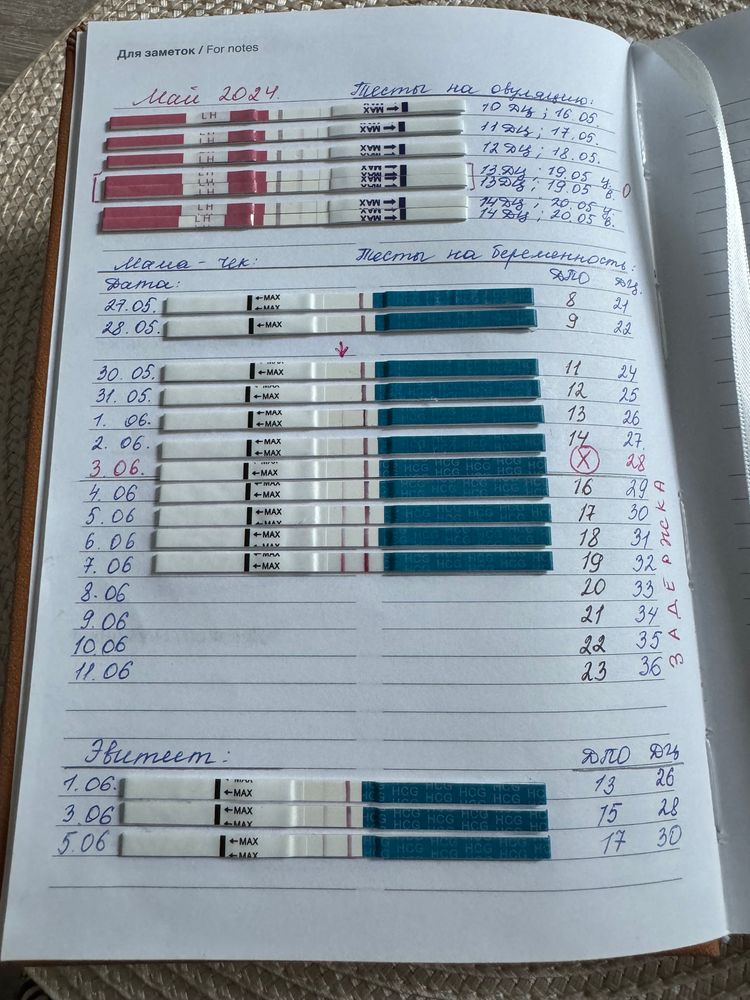 Для заметок / For notes
Май 2024. Тесты на овуляцию:
LH MAX 10 ДЦ; 16.05
MAX 11 ДЦ; 17.05.
MAX 12 ДЦ; 18.05.
LH MAX 13 ДЦ; 19.05 у. О
LH MAX 13 ДЦ; 19.05 в.
LH MAX 14 ДЦ; 20.05 у.
LH MAX 14 ДЦ; 20.05 в.
Мама - чек: Тесты на беременность:
Дата: ДПО ДЦ.
27.05. ←MAX 8 21
28.05. ←MAX 9 22
30.05. ←MAX 11 24
31.05. ←MAX 12 25
1.06. ←MAX 13 26
2.06. ←MAX 14 27.
3.06. ←MAX HCG HCG HCG HCG X 28
4.06 ←MAX 16 29
5.06 ←MAX 17 30
6.06 ←MAX 18 31
7.06 ←MAX 19 32
8.06 20 33
9.06 21 34
10.06 22 35
11.06 23 36
ЗАДЕРЖКА
Эвитест: ДПО ДЦ
1.06. ←MAX HCG HCG HCG 13 26
3.06 ←MAX HCG HCG HCG 15 28
5.06 ←MAX HCG HCG HCG 17 30